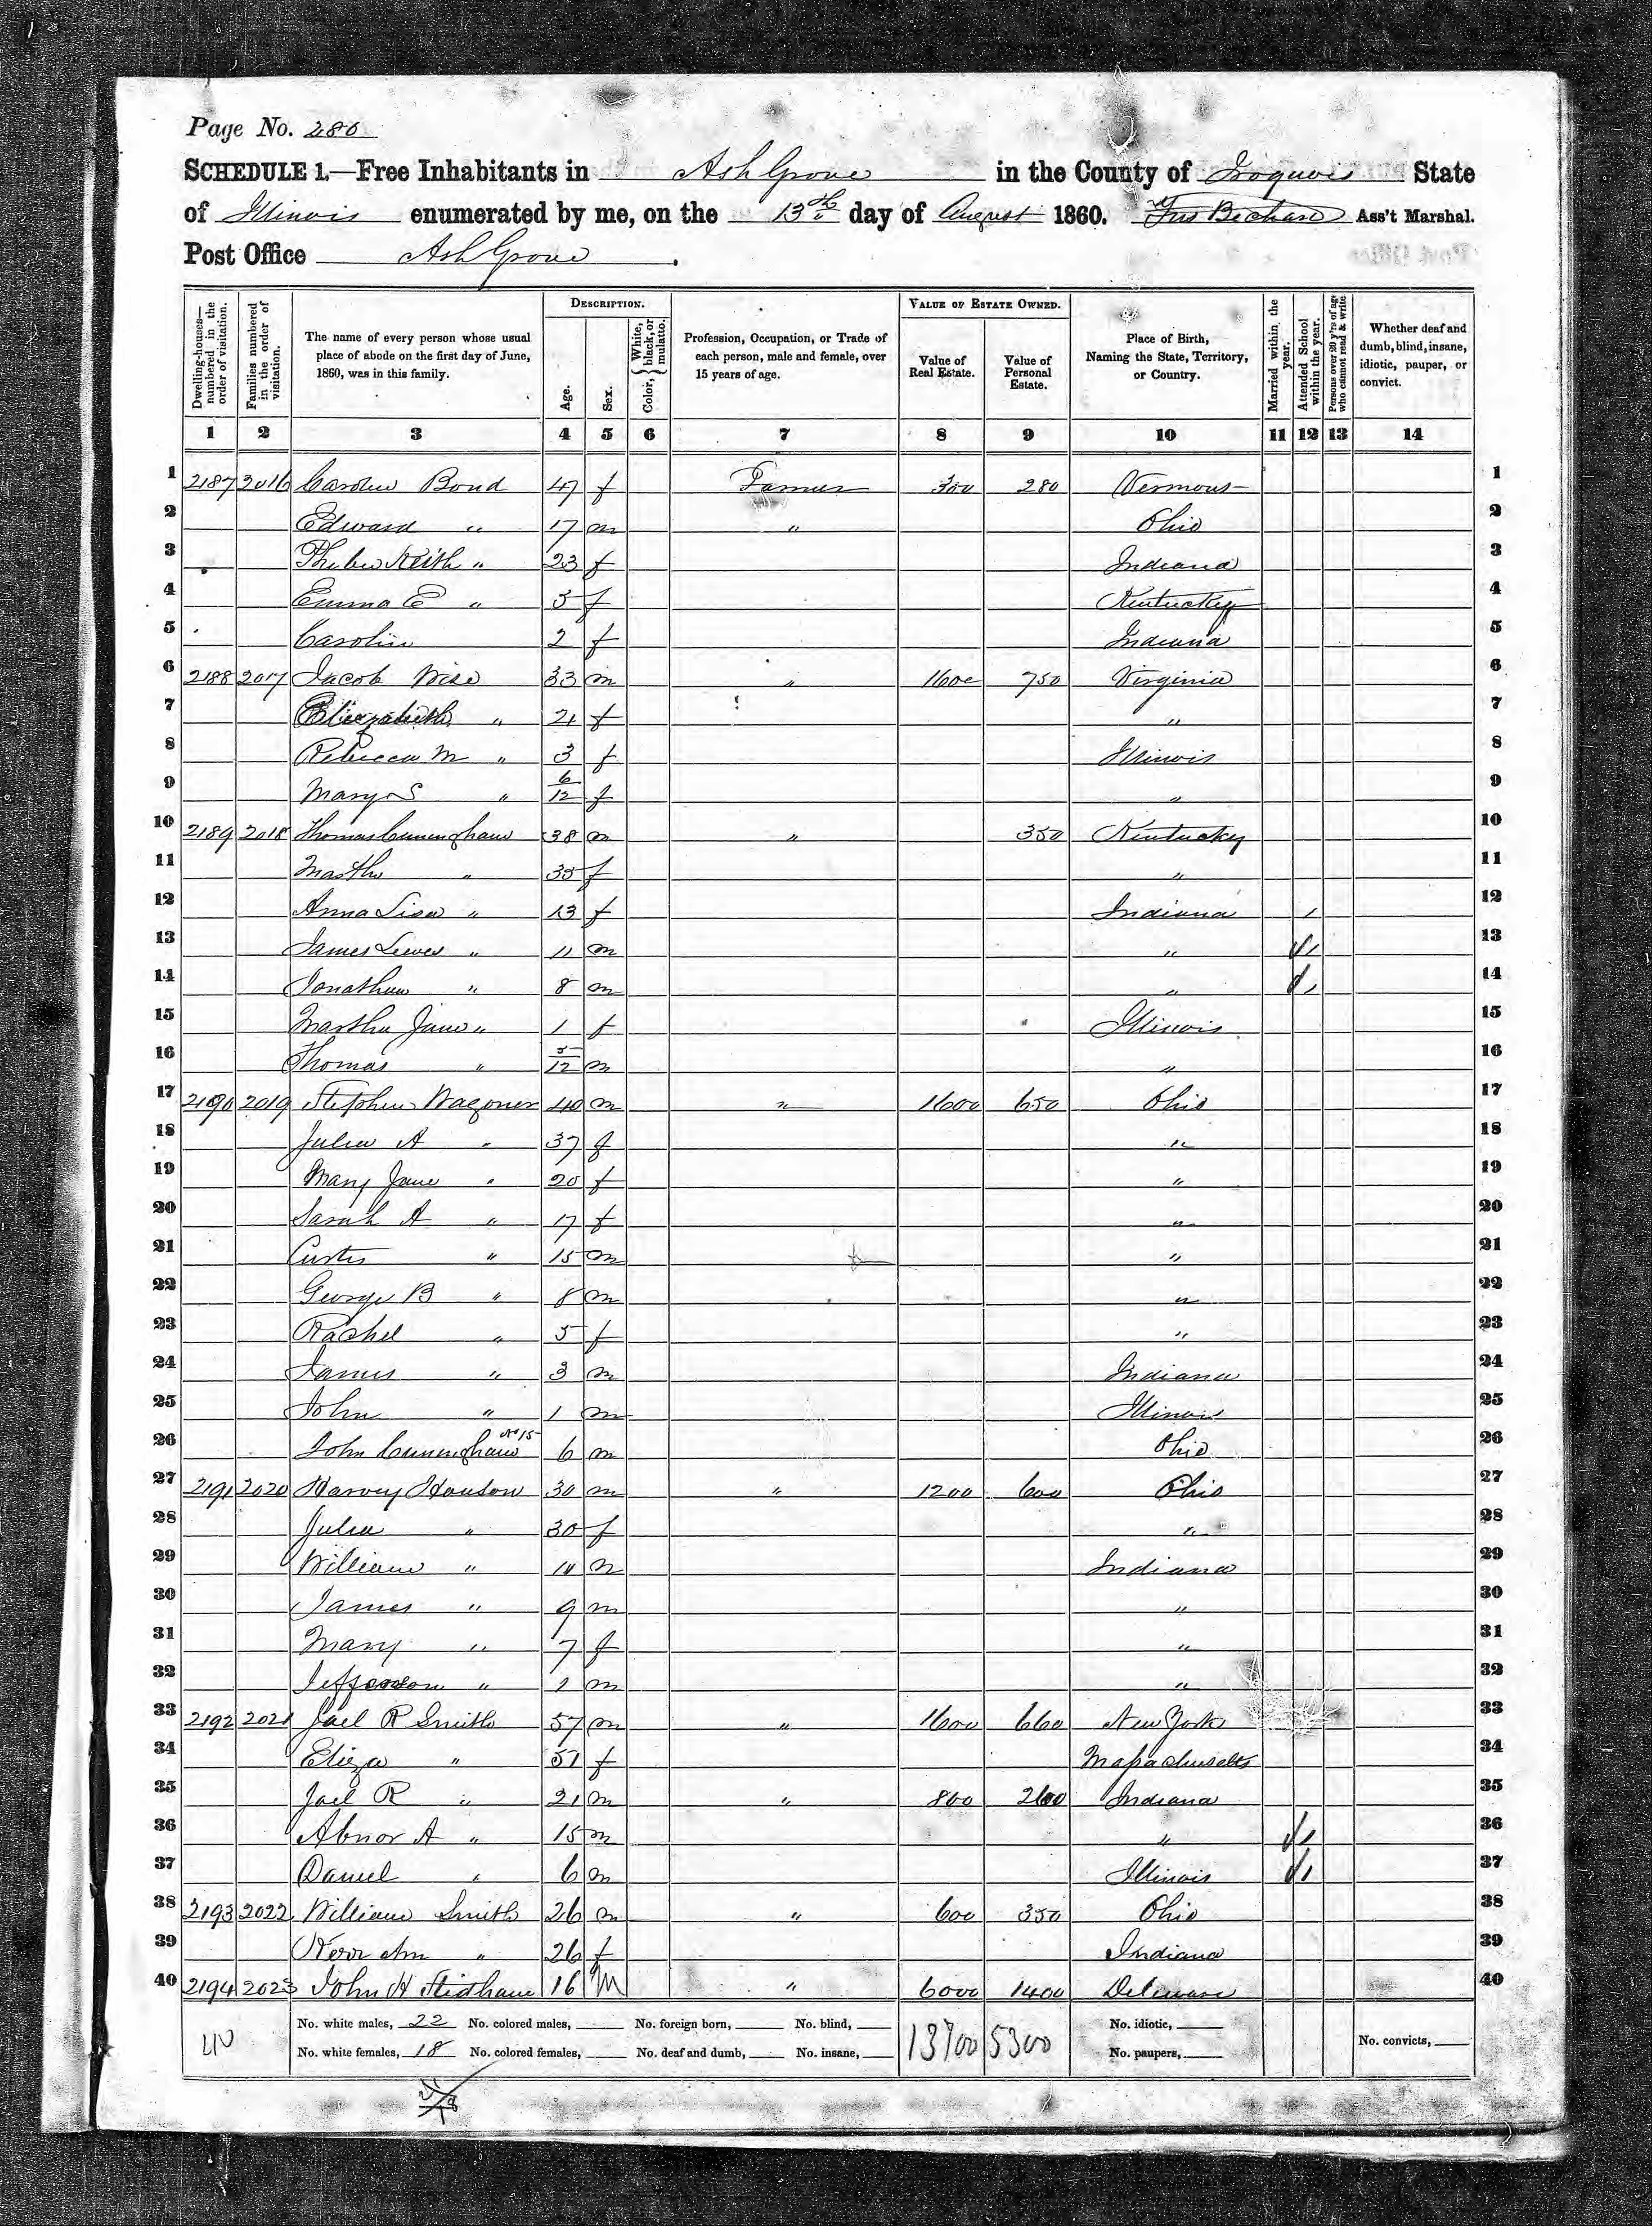 Page No. 286
SCHEDULE 1.—Free Inhabitants in Ash Grove in the County of Iroquois State
of Illinois enumerated by me, on the 13th day of August 1860. Ass't Marshal.
Post Office Ash Grove .
Dwelling-houses—numbered in the order of visitation. Families numbered in the order of visitation. The name of every person whose usual place of abode on the first day of June, 1860, was in this family. DESCRIPTION. Age. Sex. Color, { White, black, or mulatto. Profession, Occupation, or Trade of each person, male and female, over 15 years of age. VALUE OF ESTATE OWNED. Value of Real Estate. Value of Personal Estate. Place of Birth, Naming the State, Territory, or Country. Married within the year. Attended School within the year. Persons over 20 y'rs of age who cannot read & write. Whether deaf and dumb, blind, insane, idiotic, pauper, or convict.
1 2 3 4 5 6 7 8 9 10 11 12 13 14
1 2187 2016 Bond 47 f Farmer 300 280 Vermont 1
2 Edward " 17 m " Ohio 2
3 Keith " 23 f Indiana 3
4 Emma E " 3 f Kentucky 4
5 Carolin 2 f Indiana 5
6 2188 2017 Jacob Wise 33 m " 1600 750 Virginia 6
7 Eliezabeth " 21 f " 7
8 Rebecca M " 3 f Illinois 8
9 Mary S " 6/12 f " 9
10 2189 2018 Thomas Cuninghaw 38 m " 350 Kentucky 10
11 Martha " 35 f " 11
12 Anna Lisa " 13 f Indiana / 12
13 James Lewes " 11 m " / 13
14 Jonathan " 8 m " / 14
15 Martha Jane " 1 f Illinois 15
16 Thomas " 5/12 m " 16
17 2190 2019 Stephen Wagoner 40 m " 1600 650 Ohio 17
18 Julia A " 37 f " 18
19 Mary Jane " 20 f " 19
20 Sarah A " 17 f " 20
21 Curtis " 15 m " 21
22 George B " 8 m " 22
23 Rachel " 5 f " 23
24 James " 3 m Indiana 24
25 John " 1 m Illinois 25
26 John Cuninghaw No 15 6 m Ohio 26
27 2191 2020 Harvey Houdson 30 m " 1200 600 Ohio 27
28 Julia " 30 f " 28
29 William " 11 m Indiana 29
30 James " 9 m " 30
31 Mary " 7 f " 31
32 Jefferson " 1 m " 32
33 2192 2021 Joel R Smith 57 m " 1600 660 New York 33
34 Eliza " 51 f Massachusetts 34
35 Joel R " 21 m " 800 200 Indiana 35
36 Abnor A " 15 m " / 36
37 Daniel " 6 m Illinois / 37
38 2193 2022 William Smith 26 m " 600 350 Ohio 38
39 Ann " 26 f Indiana 39
40 2194 2023 John H Stidham 16 M " 6000 1400 Deleware 40
40 No. white males, 22 No. colored males, No. foreign born, No. blind, 13700 5300 No. idiotic,
No. white females, 18 No. colored females, No. deaf and dumb, No. insane, No. paupers, No. convicts,